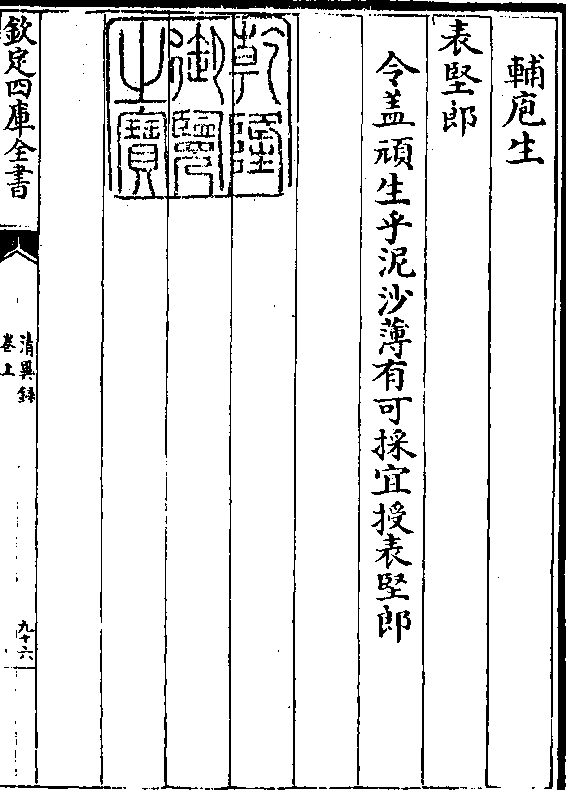 輔庖生
表堅郎
令盖頑生乎泥沙薄有可採宜授表堅郎
乾隆
御覽
之寶
欽定四庫全書
清異錄
卷上
九十六